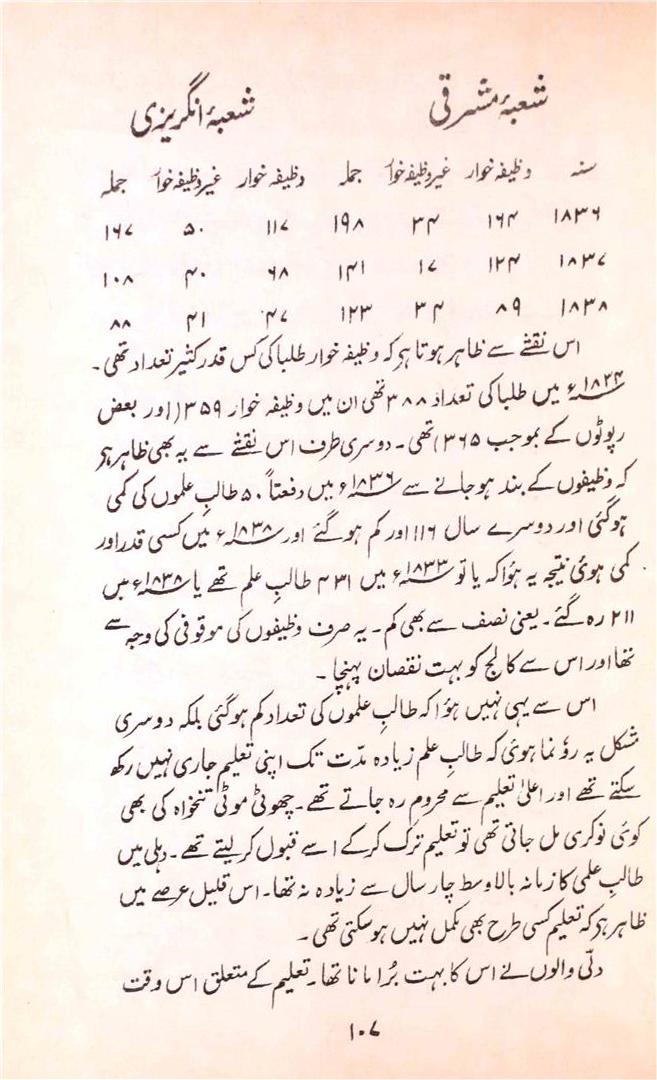 شعبۂ مشرقی شعبۂ انگریزی
سنہ وظیفہ خوار غیر وظیفہ خوار جملہ وظیفہ خوار غیر وظیفہ خوار جملہ
۱۸۳۶ ۱۶۴ ۳۴ ۱۹۸ ۱۱۷ ۵۰ ۱۶۷
۱۸۳۷ ۱۲۴ ۱۷ ۱۴۱ ۶۸ ۴۰ ۱۰۸
۱۸۳۸ ۸۹ ۳۴ ۱۲۳ ۴۷ ۴۱ ۸۸
اس نقشے سے ظاہر ہوتا ہر کہ وظیفہ خوار طلبا کی کس قدر کثیر تعداد تھی۔
۱۸۳۴ء میں طلبا کی تعداد ۳۸۸ تھی ان میں وظیفہ خوار ۳۵۹ (اور بعض
رپوٹوں کے بموجب ۳۶۵) تھی۔ دوسری طرف اس نقشے سے یہ بھی ظاہر ہر
کہ وظیفوں کے بند ہو جانے سے ۱۸۳۶ء میں دفعتاً ۵۰ طالب علموں کی کمی
ہوگئی اور دوسرے سال ۱۱۶ اور کم ہو گئے اور ۱۸۳۸ء میں کسی قدر اور
کمی ہوئی نتیجہ یہ ہؤا کہ یا تو ۱۸۳۳ء میں ۴۳۱ طالبِ علم تھے یا ۱۸۳۸ء میں
۲۱۱ رہ گئے۔ یعنی نصف سے بھی کم۔ یہ صرف وظیفوں کی موقوفی کی وجہ سے
تھا اور اس سے کالج کو بہت نقصان پہنچا۔
اس سے یہی نہیں ہؤا کہ طالبِ علموں کی تعداد کم ہوگئی بلکہ دوسری
شکل یہ رؤنما ہوئی کہ طالبِ علم زیادہ مدّت تک اپنی تعلیم جاری نہیں رکھ
سکتے تھے اور اعلیٰ تعلیم سے محروم رہ جاتے تھے۔ چھوٹی موٹی تنخواہ کی بھی
کوئی نوکری مل جاتی تھی تو تعلیم ترک کر کے اسے قبول کر لیتے تھے۔ دہلی میں
طالب علمی کا زمانہ بالاوسط چار سال سے زیادہ نہ تھا۔ اس قلیل عرصے میں
ظاہر ہر کہ تعلیم کسی طرح بھی مکمل نہیں ہوسکتی تھی۔
دلّی والوں نے اس کا بہت بُرا مانا تھا۔ تعلیم کے متعلق اس وقت
۱۰۷